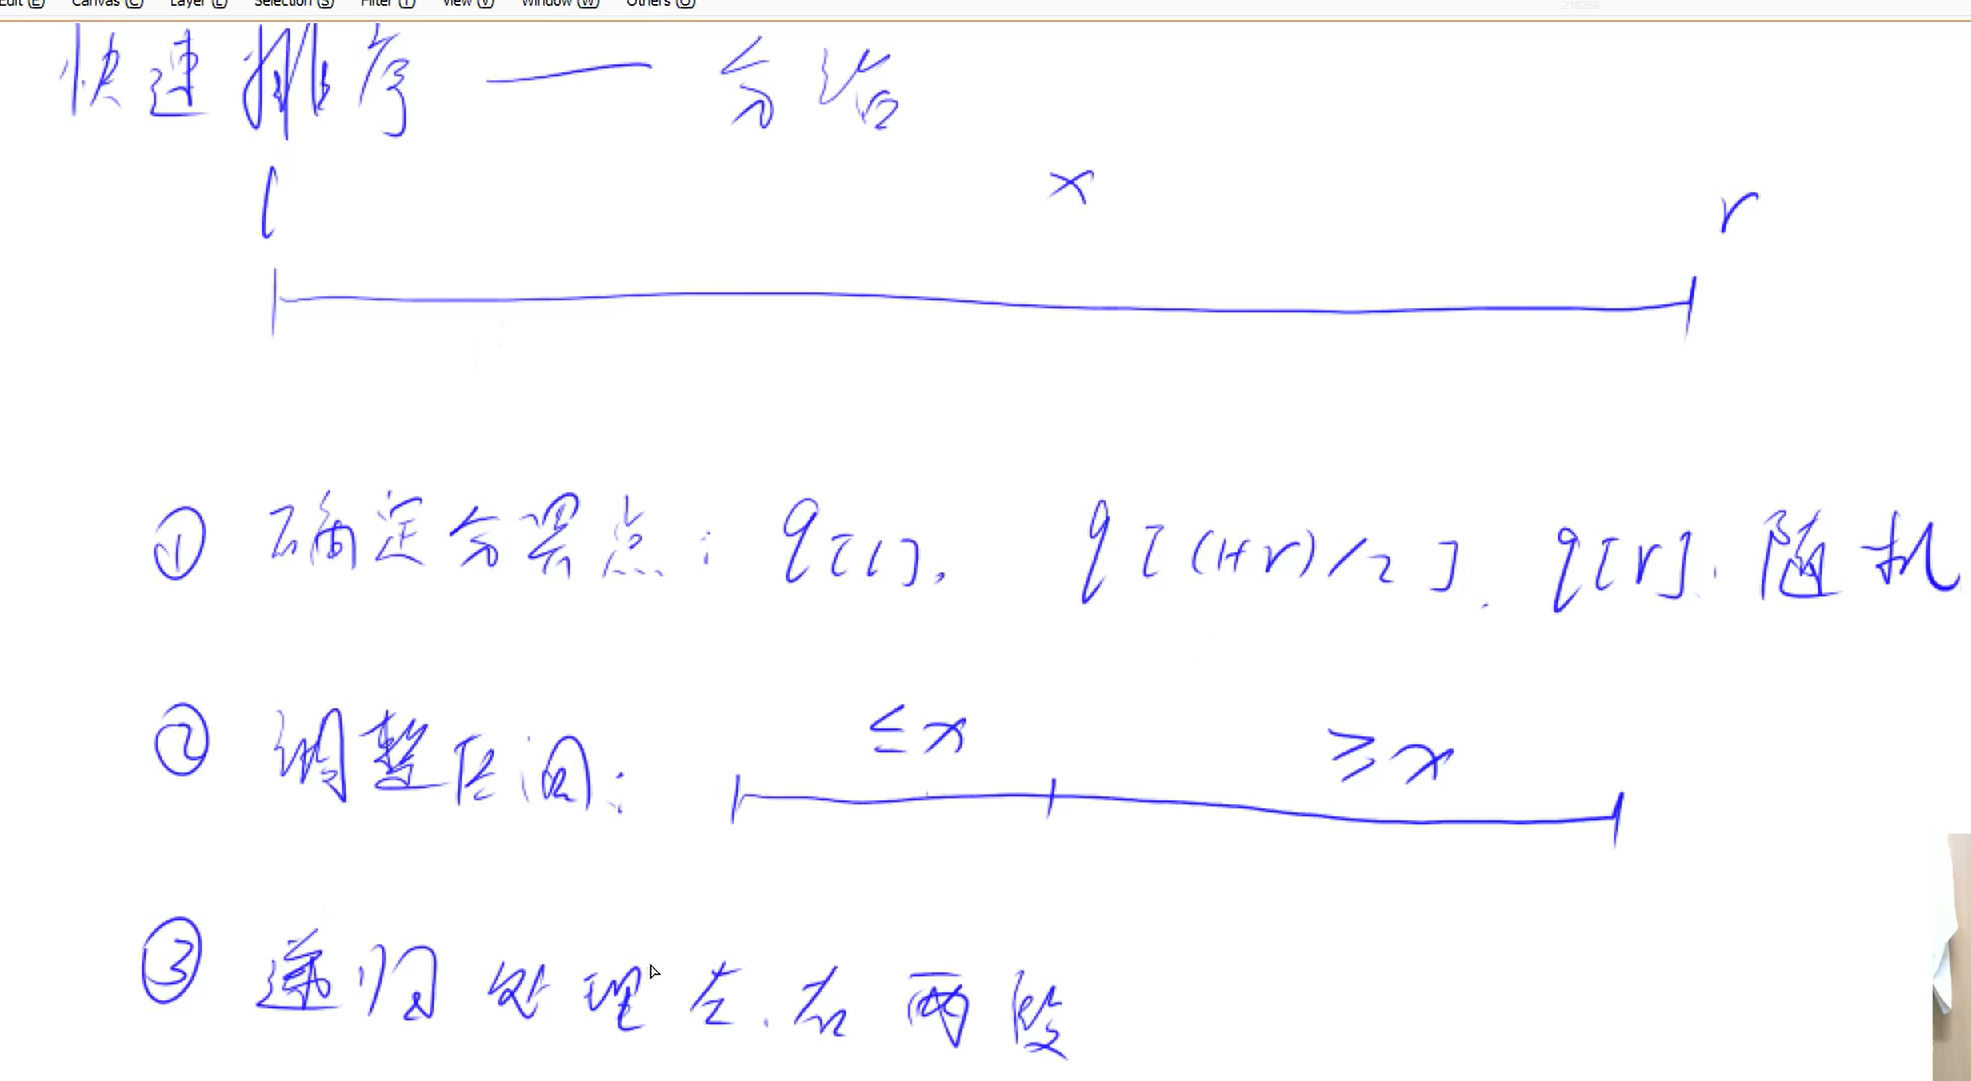 Edit (E) Canvas (C) Layer (L) Selection (S) Filter (T) View (V) Window (W) Others (O)
210268
快速排序 —— 分治
l x r
① 确定分界点: q[l], q[(l+r)/2], q[r], 随机
② 调整区间: ≤x ≥x
③ 递归处理左、右两段